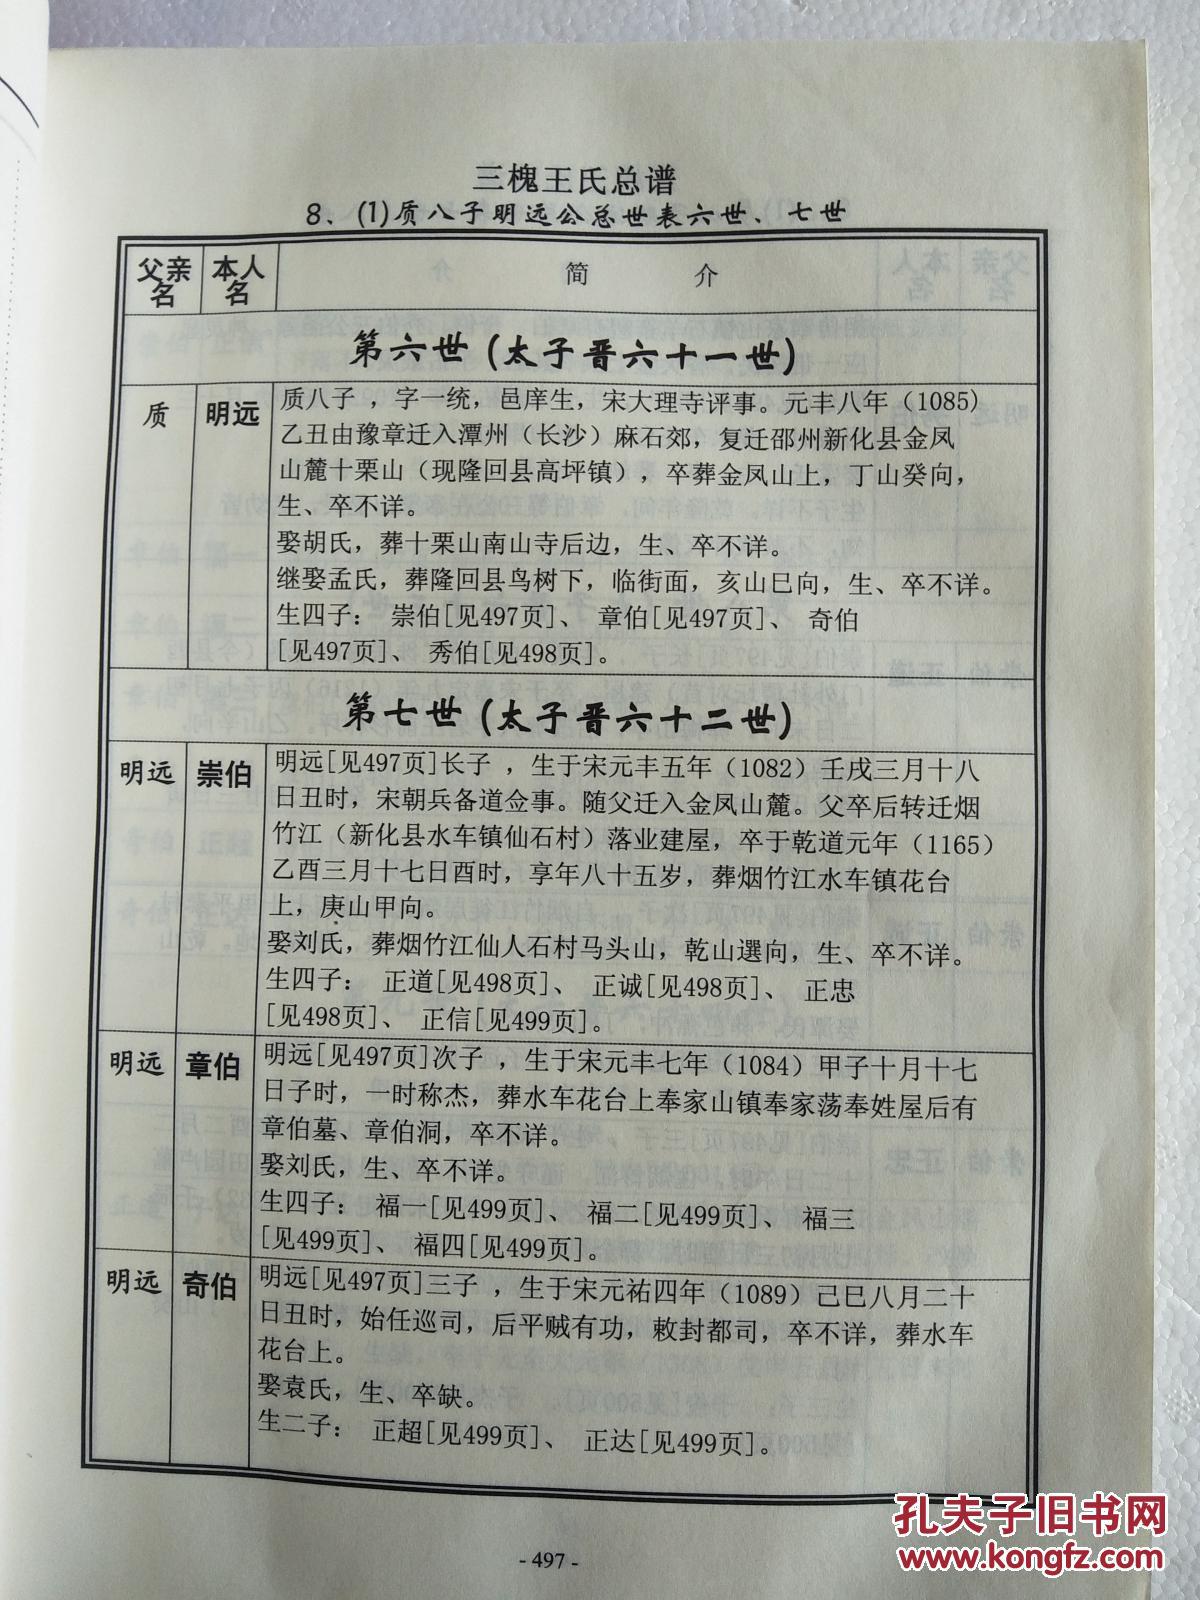 三槐王氏总谱
8、(1)质八子明远公总世表六世、七世
父亲名 本人名 简 介
第六世(太子晋六十一世)
质 明远 质八子，字一统，邑庠生，宋大理寺评事。元丰八年（1085）
乙丑由豫章迁入潭州（长沙）麻石郊，复迁邵州新化县金凤
山麓十栗山（现隆回县高坪镇），卒葬金凤山上，丁山癸向，
生、卒不详。
娶胡氏，葬十栗山南山寺后边，生、卒不详。
继娶孟氏，葬隆回县鸟树下，临街面，亥山巳向，生、卒不详。
生四子： 崇伯[见497页]、 章伯[见497页]、 奇伯
[见497页]、 秀伯[见498页]。
第七世(太子晋六十二世)
明远 崇伯 明远[见497页]长子 ，生于宋元丰五年（1082）壬戌三月十八
日丑时，宋朝兵备道佥事。随父迁入金凤山麓。父卒后转迁烟
竹江（新化县水车镇仙石村）落业建屋，卒于乾道元年（1165）
乙酉三月十七日酉时，享年八十五岁，葬烟竹江水车镇花台
上，庚山甲向。
娶刘氏，葬烟竹江仙人石村马头山，乾山選向，生、卒不详。
生四子： 正道[见498页]、 正诚[见498页]、 正忠
[见498页]、 正信[见499页]。
明远 章伯 明远[见497页]次子 ，生于宋元丰七年（1084）甲子十月十七
日子时，一时称杰，葬水车花台上奉家山镇奉家荡奉姓屋后有
章伯墓、章伯洞，卒不详。
娶刘氏，生、卒不详。
生四子： 福一[见499页]、 福二[见499页]、 福三
[见499页]、 福四[见499页]。
明远 奇伯 明远[见497页]三子 ，生于宋元祐四年（1089）己巳八月二十
日丑时，始任巡司，后平贼有功，敕封都司，卒不详，葬水车
花台上。
娶袁氏，生、卒缺。
生二子： 正超[见499页]、 正达[见499页]。
- 497 -
孔夫子旧书网
www.kongfz.com